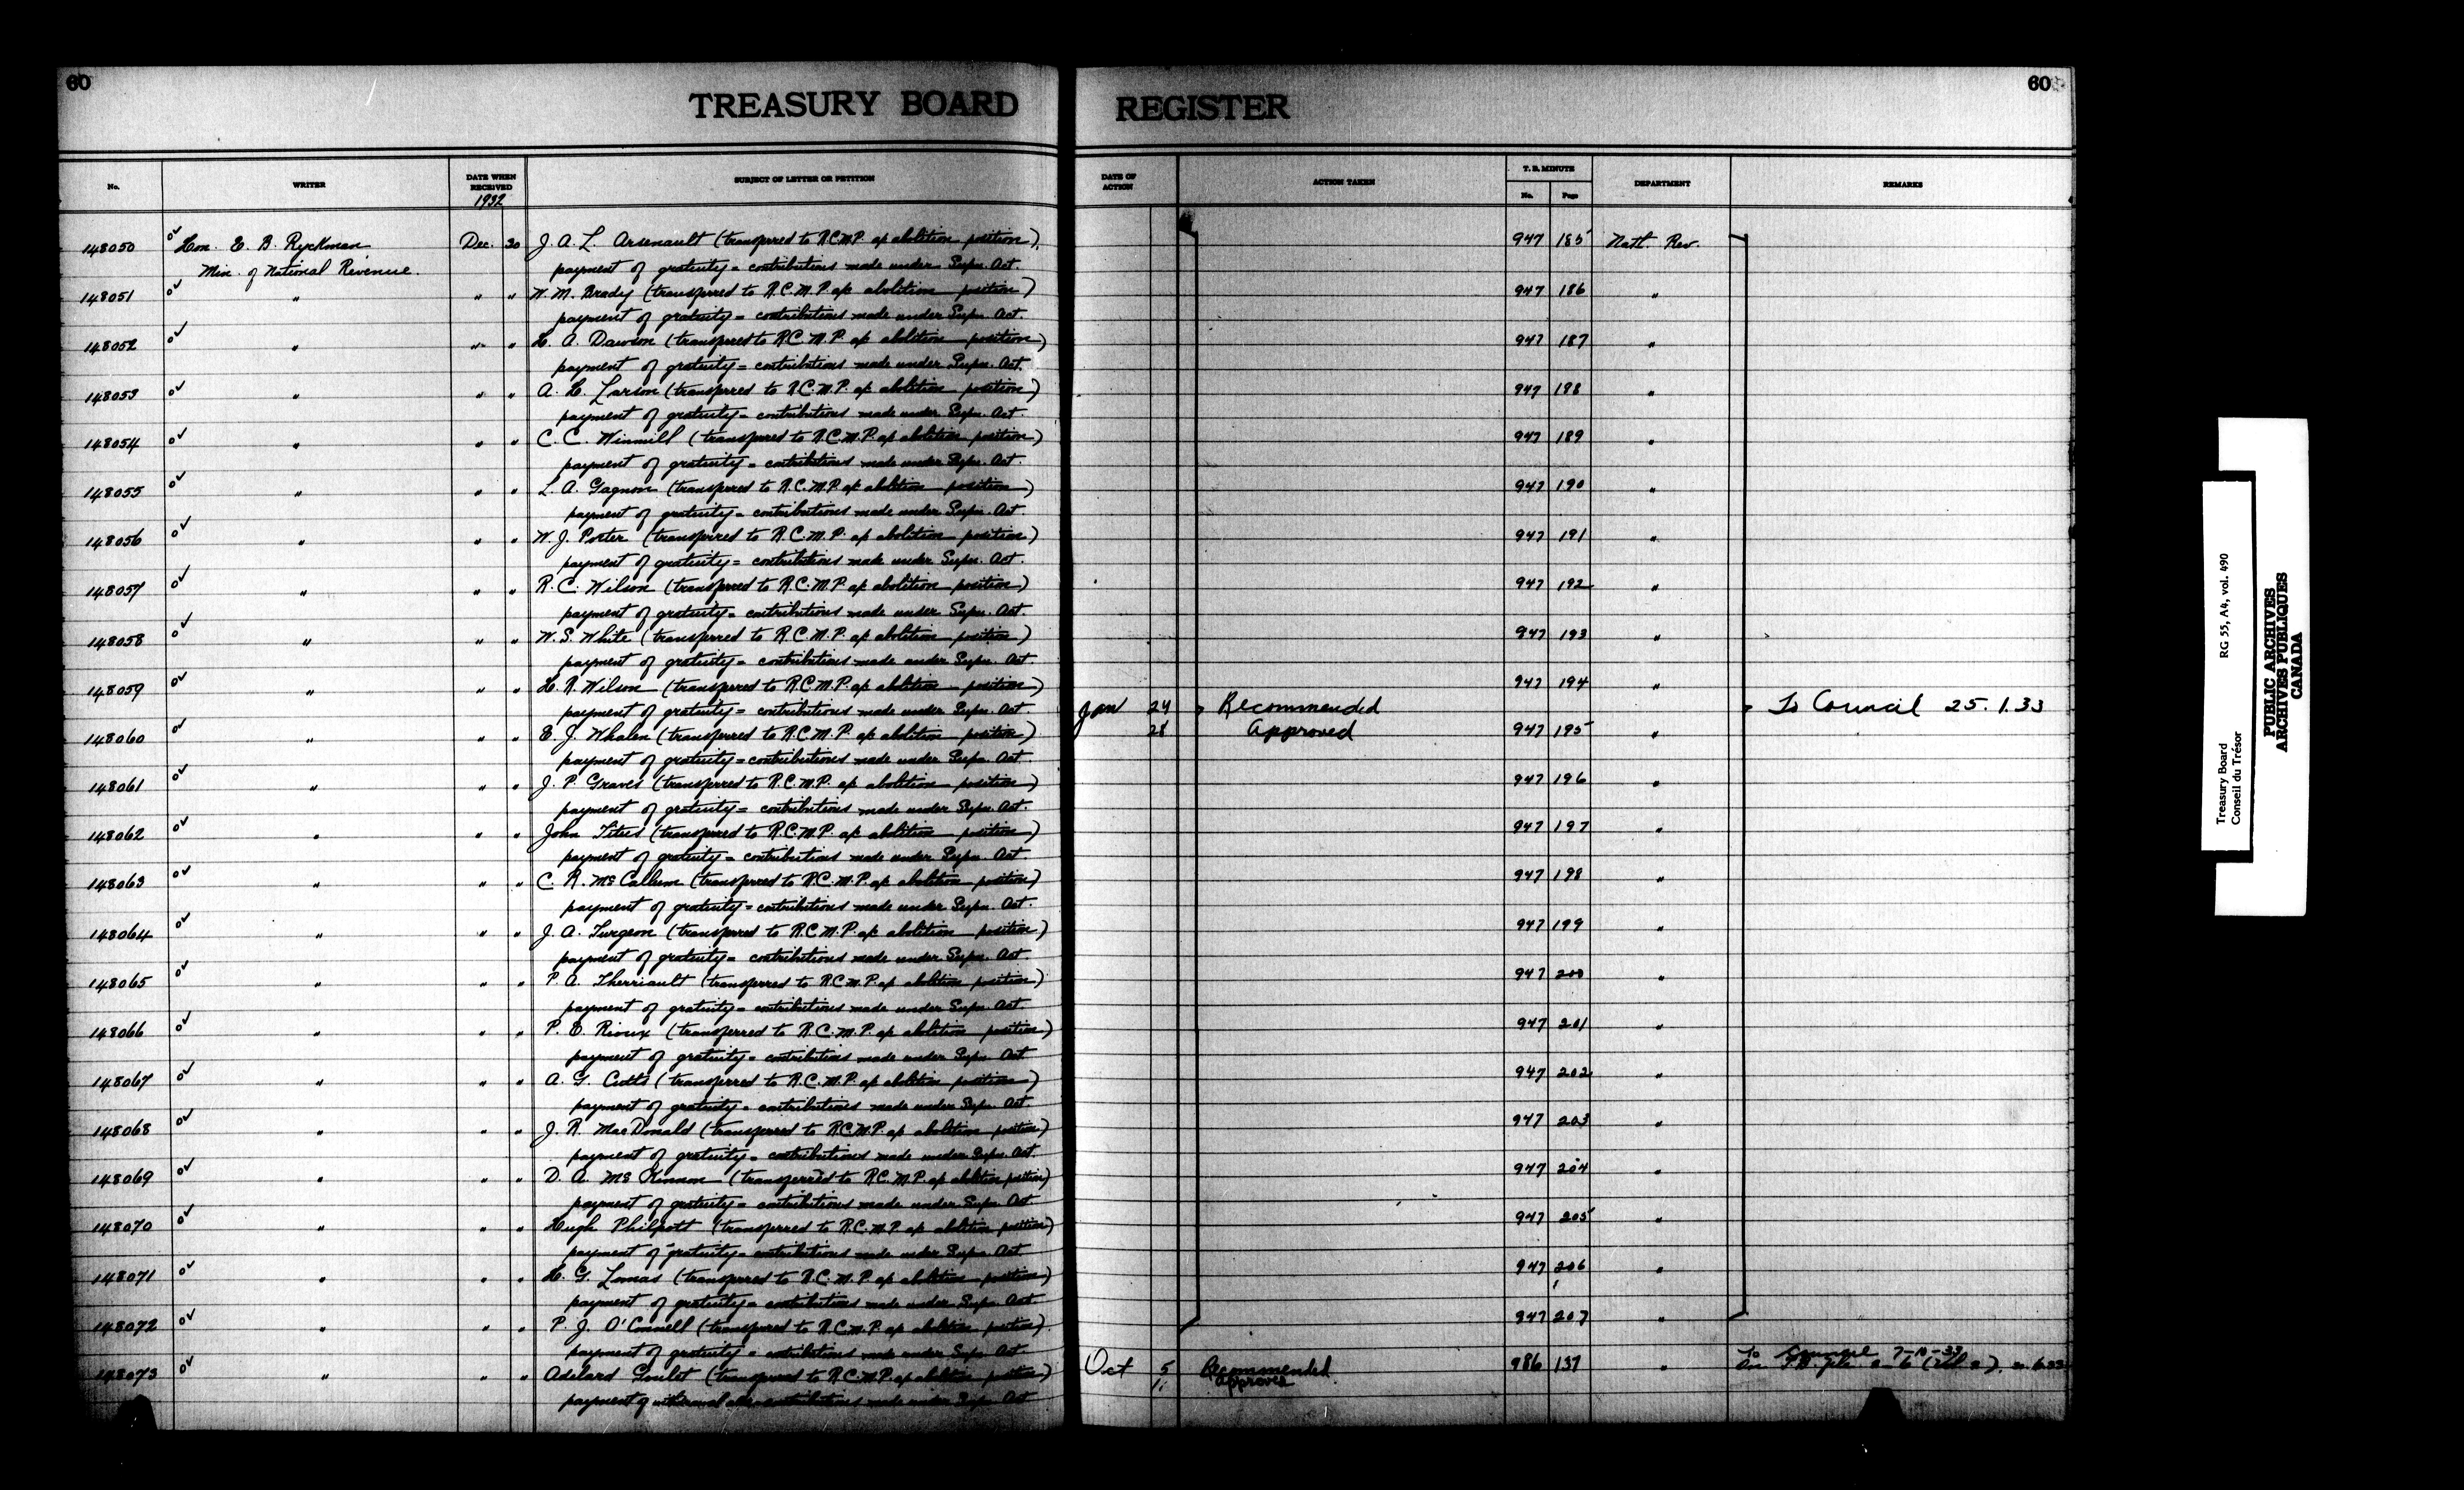 60
TREASURY BOARD
REGISTER
60
No.
WRITER
DATE WHEN RECEIVED
1932
SUBJECT OF LETTER OR PETITION
DATE OF ACTION
ACTION TAKEN
T. B. MINUTE
No.
Page
DEPARTMENT
REMARKS
148050 Hon. E. B. Ryckman Dec. 30 J. A. L. Arsenault (transferred to R.C.M.P. a/c abolition position) 947 185 Natl. Rev.
Min. of National Revenue. payment of gratuity = contributions made under Supn. Act.
148051 " " " W. M. Brady (transferred to R.C.M.P. a/c abolition position) 947 186 "
payment of gratuity = contributions made under Supn. Act.
148052 " " " H. A. Dawson (transferred to R.C.M.P. a/c abolition position) 947 187 "
payment of gratuity = contributions made under Supn. Act.
148053 " " " A. H. Larson (transferred to R.C.M.P. a/c abolition position) 947 188 "
payment of gratuity = contributions made under Supn. Act.
148054 " " " C. C. Winmill (transferred to R.C.M.P. a/c abolition position) 947 189 "
payment of gratuity = contributions made under Supn. Act.
148055 " " " L. A. Gagnon (transferred to R.C.M.P. a/c abolition position) 947 190 "
payment of gratuity = contributions made under Supn. Act.
148056 " " " W. J. Porter (transferred to R.C.M.P. a/c abolition position) 947 191 "
payment of gratuity = contributions made under Supn. Act.
148057 " " " R. C. Wilson (transferred to R.C.M.P. a/c abolition position) 947 192 "
payment of gratuity = contributions made under Supn. Act.
148058 " " " W. S. White (transferred to R.C.M.P. a/c abolition position) 947 193 "
payment of gratuity = contributions made under Supn. Act.
148059 " " " H. R. Wilson (transferred to R.C.M.P. a/c abolition position) 947 194 "
payment of gratuity = contributions made under Supn. Act Jan 24 Recommended To Council 25.1.33
148060 " " " E. J. Whalen (transferred to R.C.M.P. a/c abolition position) 28 Approved 947 195 "
payment of gratuity = contributions made under Supn. Act
148061 " " " J. P. Graves (transferred to R.C.M.P. a/c abolition position) 947 196 "
payment of gratuity = contributions made under Supn. Act.
148062 " " " John Titus (transferred to R.C.M.P. a/c abolition position) 947 197 "
payment of gratuity = contributions made under Supn. Act.
148063 " " " C. R. McCallum (transferred to R.C.M.P. a/c abolition position) 947 198 "
payment of gratuity = contributions made under Supn. Act.
148064 " " " J. A. Turgeon (transferred to R.C.M.P. a/c abolition position) 947 199 "
payment of gratuity = contributions made under Supn. Act
148065 " " " P. A. Therriault (transferred to R.C.M.P. a/c abolition position) 947 200 "
payment of gratuity = contributions made under Supn. Act
148066 " " " P. E. Rioux (transferred to R.C.M.P. a/c abolition position) 947 201 "
payment of gratuity = contributions made under Supn. Act
148067 " " " A. G. Cutts (transferred to R.C.M.P. a/c abolition position) 947 202 "
payment of gratuity = contributions made under Supn. Act.
148068 " " " J. R. MacDonald (transferred to R.C.M.P. a/c abolition position) 947 203 "
payment of gratuity = contributions made under Supn. Act.
148069 " " " D. A. McKinnon (transferred to R.C.M.P. a/c abolition position) 947 204 "
payment of gratuity = contributions made under Supn. Act
148070 " " " Hugh Philpott (transferred to R.C.M.P. a/c abolition position) 947 205 "
payment of gratuity = contributions made under Supn. Act
148071 " " " H. G. Lomas (transferred to R.C.M.P. a/c abolition position) 947 206 "
payment of gratuity = contributions made under Supn. Act
148072 " " " P. J. O'Connell (transferred to R.C.M.P. a/c abolition position) 947 207 "
payment of gratuity = contributions made under Supn. Act
148073 " " " Adelard Goulet (transferred to R.C.M.P. a/c abolition position) Oct 5 Recommended 986 137 " To Council 7-10-33
11 Approved
payment of withdrawal contributions made under Supn. Act
Treasury Board RG 55, A4, vol. 490
Conseil du Trésor
PUBLIC ARCHIVES
ARCHIVES PUBLIQUES
CANADA